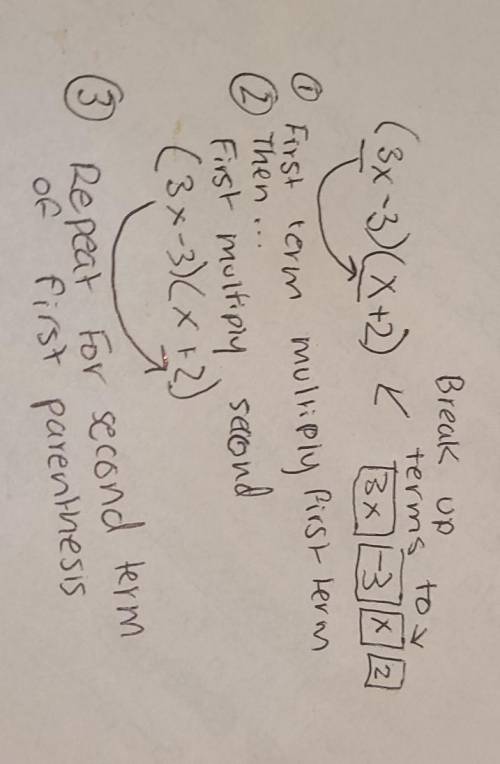 Break up
terms to
(3x-3)(x+2)
3x -3 x 2
① First term multiply first term
② Then...
First multiply second
(3x-3)(x+2)
③ Repeat for second term
of first parenthesis